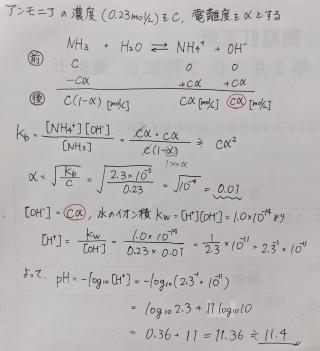 アンモニアの濃度(0.23mol/L)をC, 電離度をαとする
NH₃ + H₂O ⇄ NH₄⁺ + OH⁻
前 C 0 0
-Cα +Cα +Cα
後 C(1-α)[mol/L] Cα[mol/L] Cα[mol/L]
Kb = [NH₄⁺][OH⁻]/[NH₃] = Cα・Cα/C(1-α) ≒ Cα²
1≫α
α = √(Kb/C) = √(2.3×10⁻⁵/0.23) = √10⁻⁴ = 0.01
[OH⁻] = Cα, 水のイオン積 Kw = [H⁺][OH⁻] = 1.0×10⁻¹⁴より
[H⁺] = Kw/[OH⁻] = 1.0×10⁻¹⁴/0.23×0.01 = 1/2.3×10⁻¹¹ = 2.3⁻¹×10⁻¹¹
よって, pH = -log₁₀[H⁺] = -log₁₀(2.3⁻¹×10⁻¹¹)
= log₁₀2.3 + 11log₁₀10
= 0.36 + 11 = 11.36 ≒ 11.4